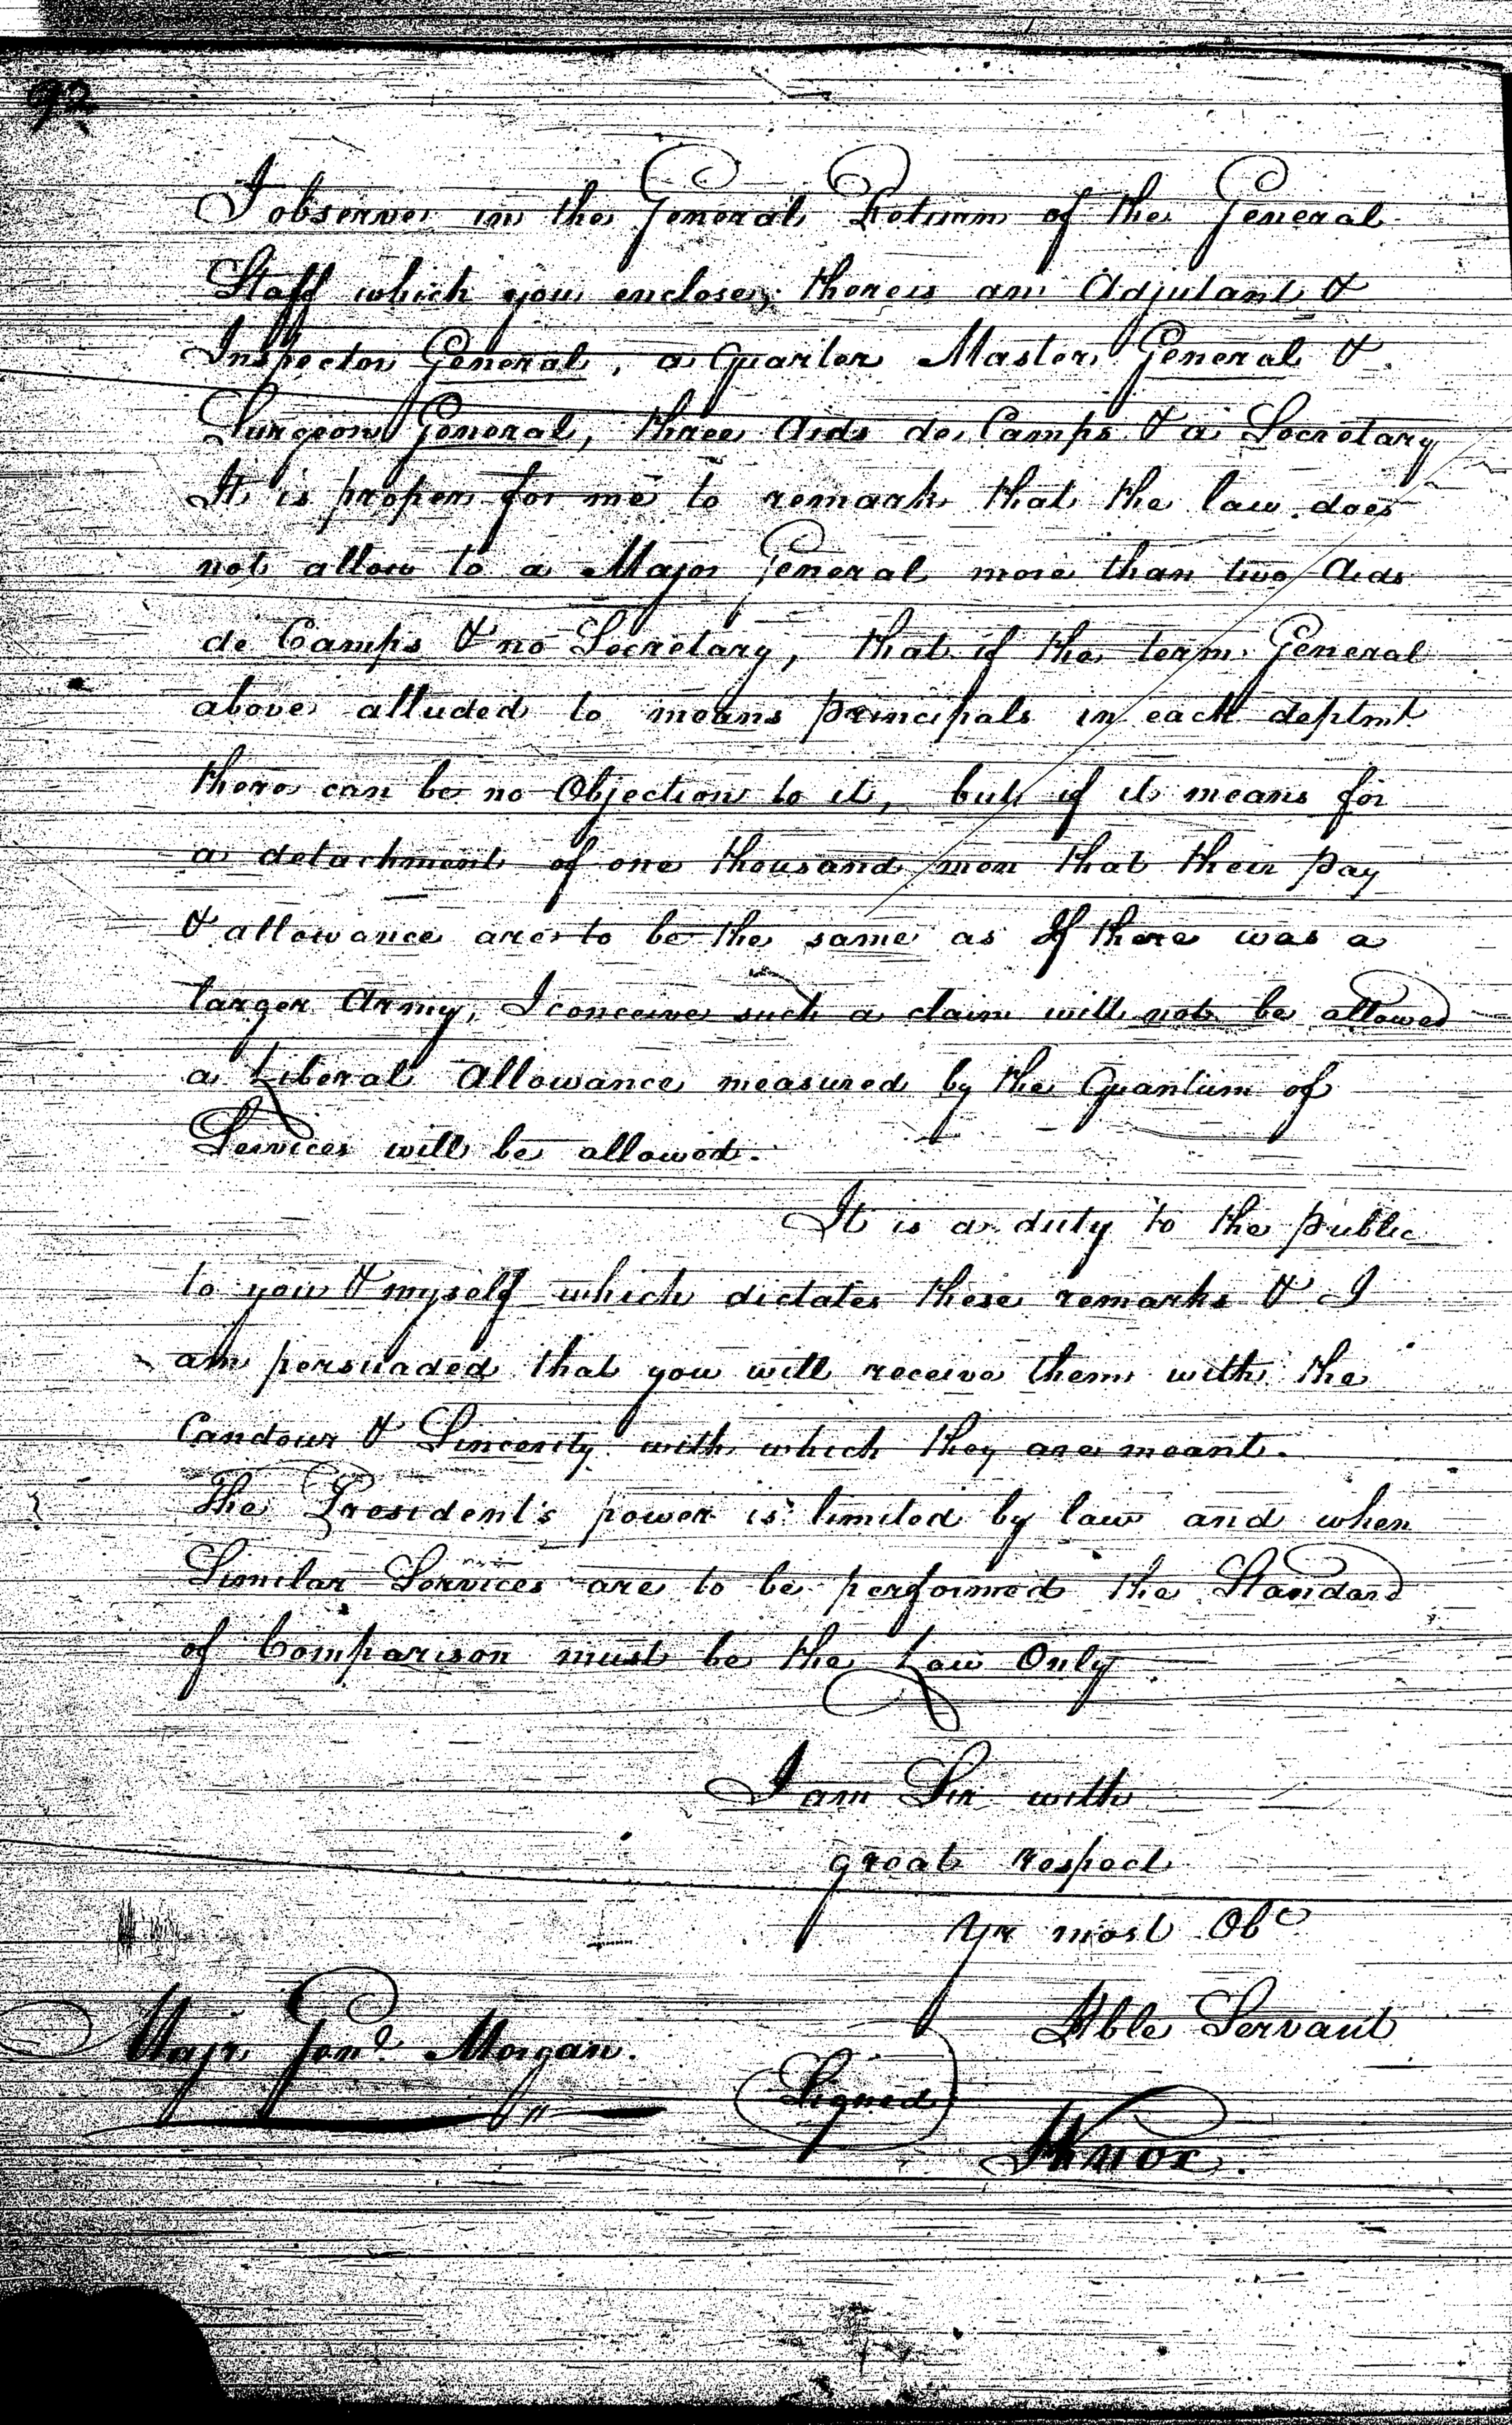 92
I observe in the General Return of the General
Staff which you enclose, there is an Adjutant &
Inspector General, a Quarter Master General &
Surgeon General, three Aids de Camps & a Secretary
It is proper for me to remark that the law does
not allow to a Major General more than two Aids
de Camps & no Secretary, that if the term General
above alluded to means principals in each deptmt
there can be no Objection to it, but if it means for
a detachment of one thousand men that their pay
& allowance are to be the same as If there was a
larger Army, I conceive such a claim will not be allowed
a Liberal Allowance measured by the Quantum of
Services will be allowed.
It is a duty to the public
to you & myself which dictates these remarks & I
am persuaded that you will receive them with the
Candour & Sincerity with which they are meant.
The President's power is limited by law and when
Similar Services are to be performed the Standard
of Comparison must be the Law Only
I am Sir with
great respect
Yr most Obe
Hble Servant
Majr Genl. Morgan.
(Signed)
HKnox.